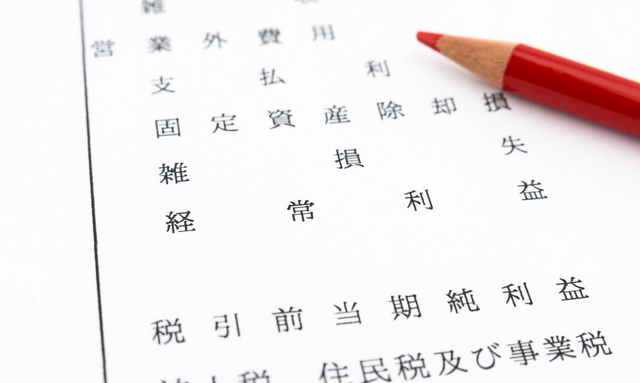 雑
営業外費用
支払利
固定資産除却損
雑損失
経常利益
税引前当期純利益
住民税及び事業税